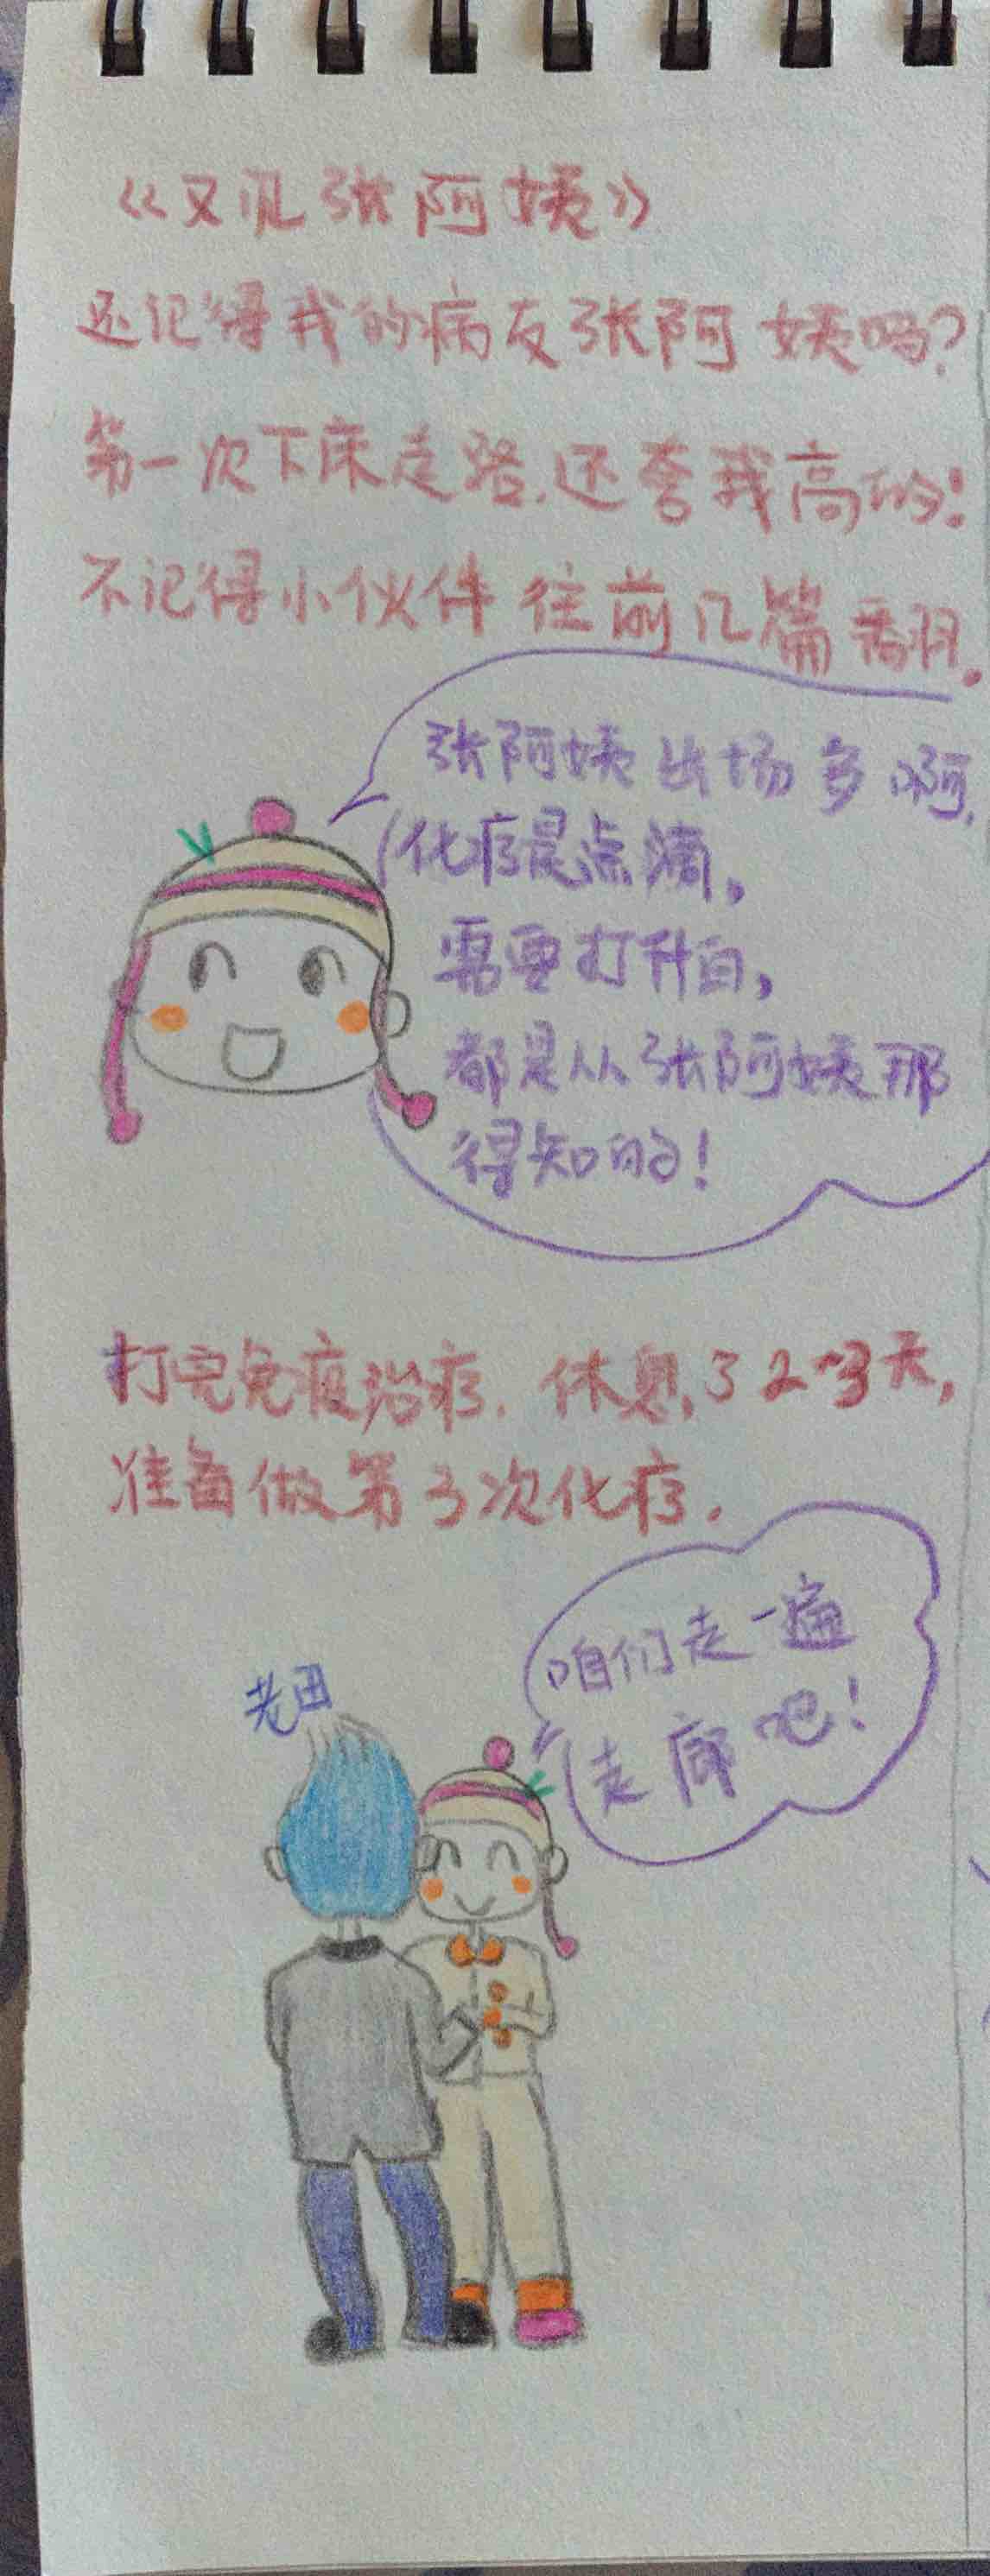 《又见张阿姨》
还记得我的病友张阿姨吗？
第一次下床走路.还夸我高的！
不记得小伙伴往前几篇番羽.
张阿姨出场多啊,
化疗是点滴,
需要打升白,
都是从张阿姨那
得知的！
打完免疫治疗.休息了2-3天,
准备做第3次化疗.
咱们走一遍
走廊吧！
老田